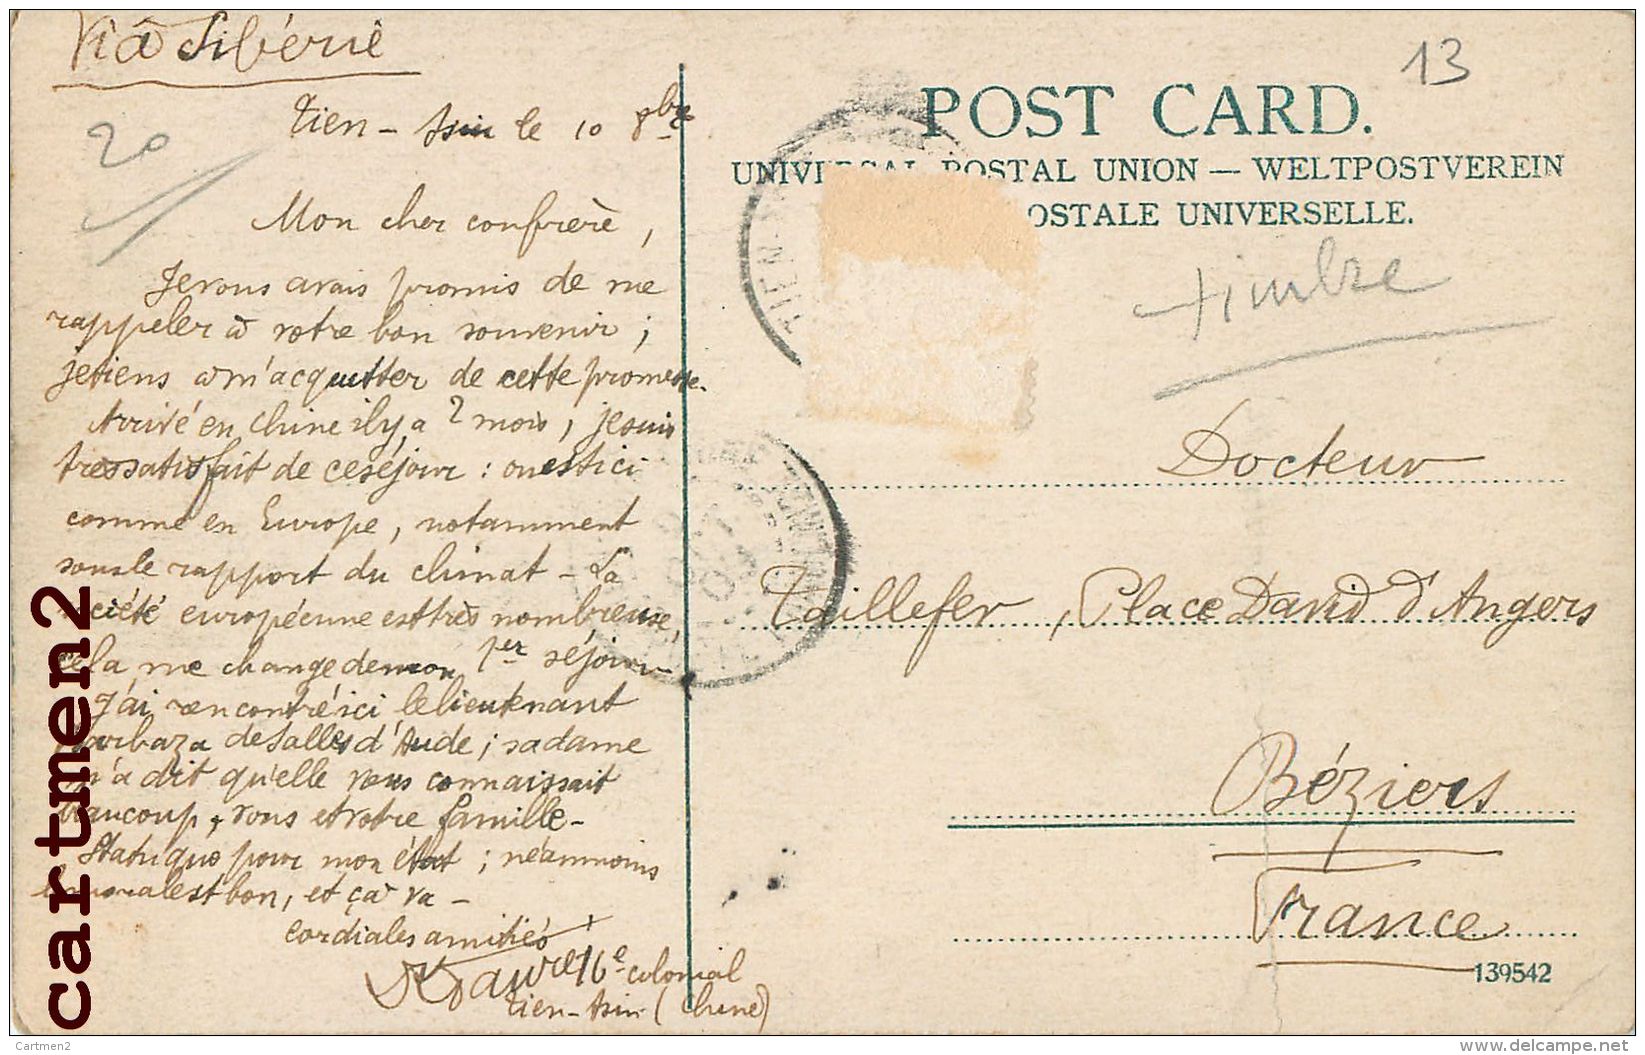 Viâ Sibérie
Tien-tsin le 10 8bre
20
Mon cher confrère,
Je vous avais promis de me
rappeler à votre bon souvenir ;
je tiens à m'acquitter de cette promesse.
Arrivé en Chine il y a 2 mois, je suis
très satisfait de ce séjour : on est ici
comme en Europe, notamment
sous le rapport du climat - La
ciété européenne est très nombreuse,
cela me change de mon 1er séjour -
J'ai rencontré ici le lieutenant
de Salles d'Aude ; sa dame
m'a dit qu'elle vous connaissait
beaucoup, vous et votre famille -
Statu quo pour mon état ; néanmoins
le moral est bon, et ça va -
Cordiales amitiés
16e colonial
Tien-tsin (Chine)
13
POST CARD.
UNIVERSAL POSTAL UNION — WELTPOSTVEREIN
OSTALE UNIVERSELLE.
TIEN-
timbre
Docteur
Taillefer, Place David d'Angers
Béziers
France
139542
cartmen2
Cartmen2
www.delcampe.net